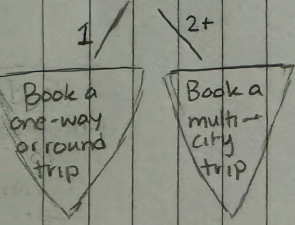 1
2+
Book a
one-way
or round
trip
Book a
multi-
city
trip